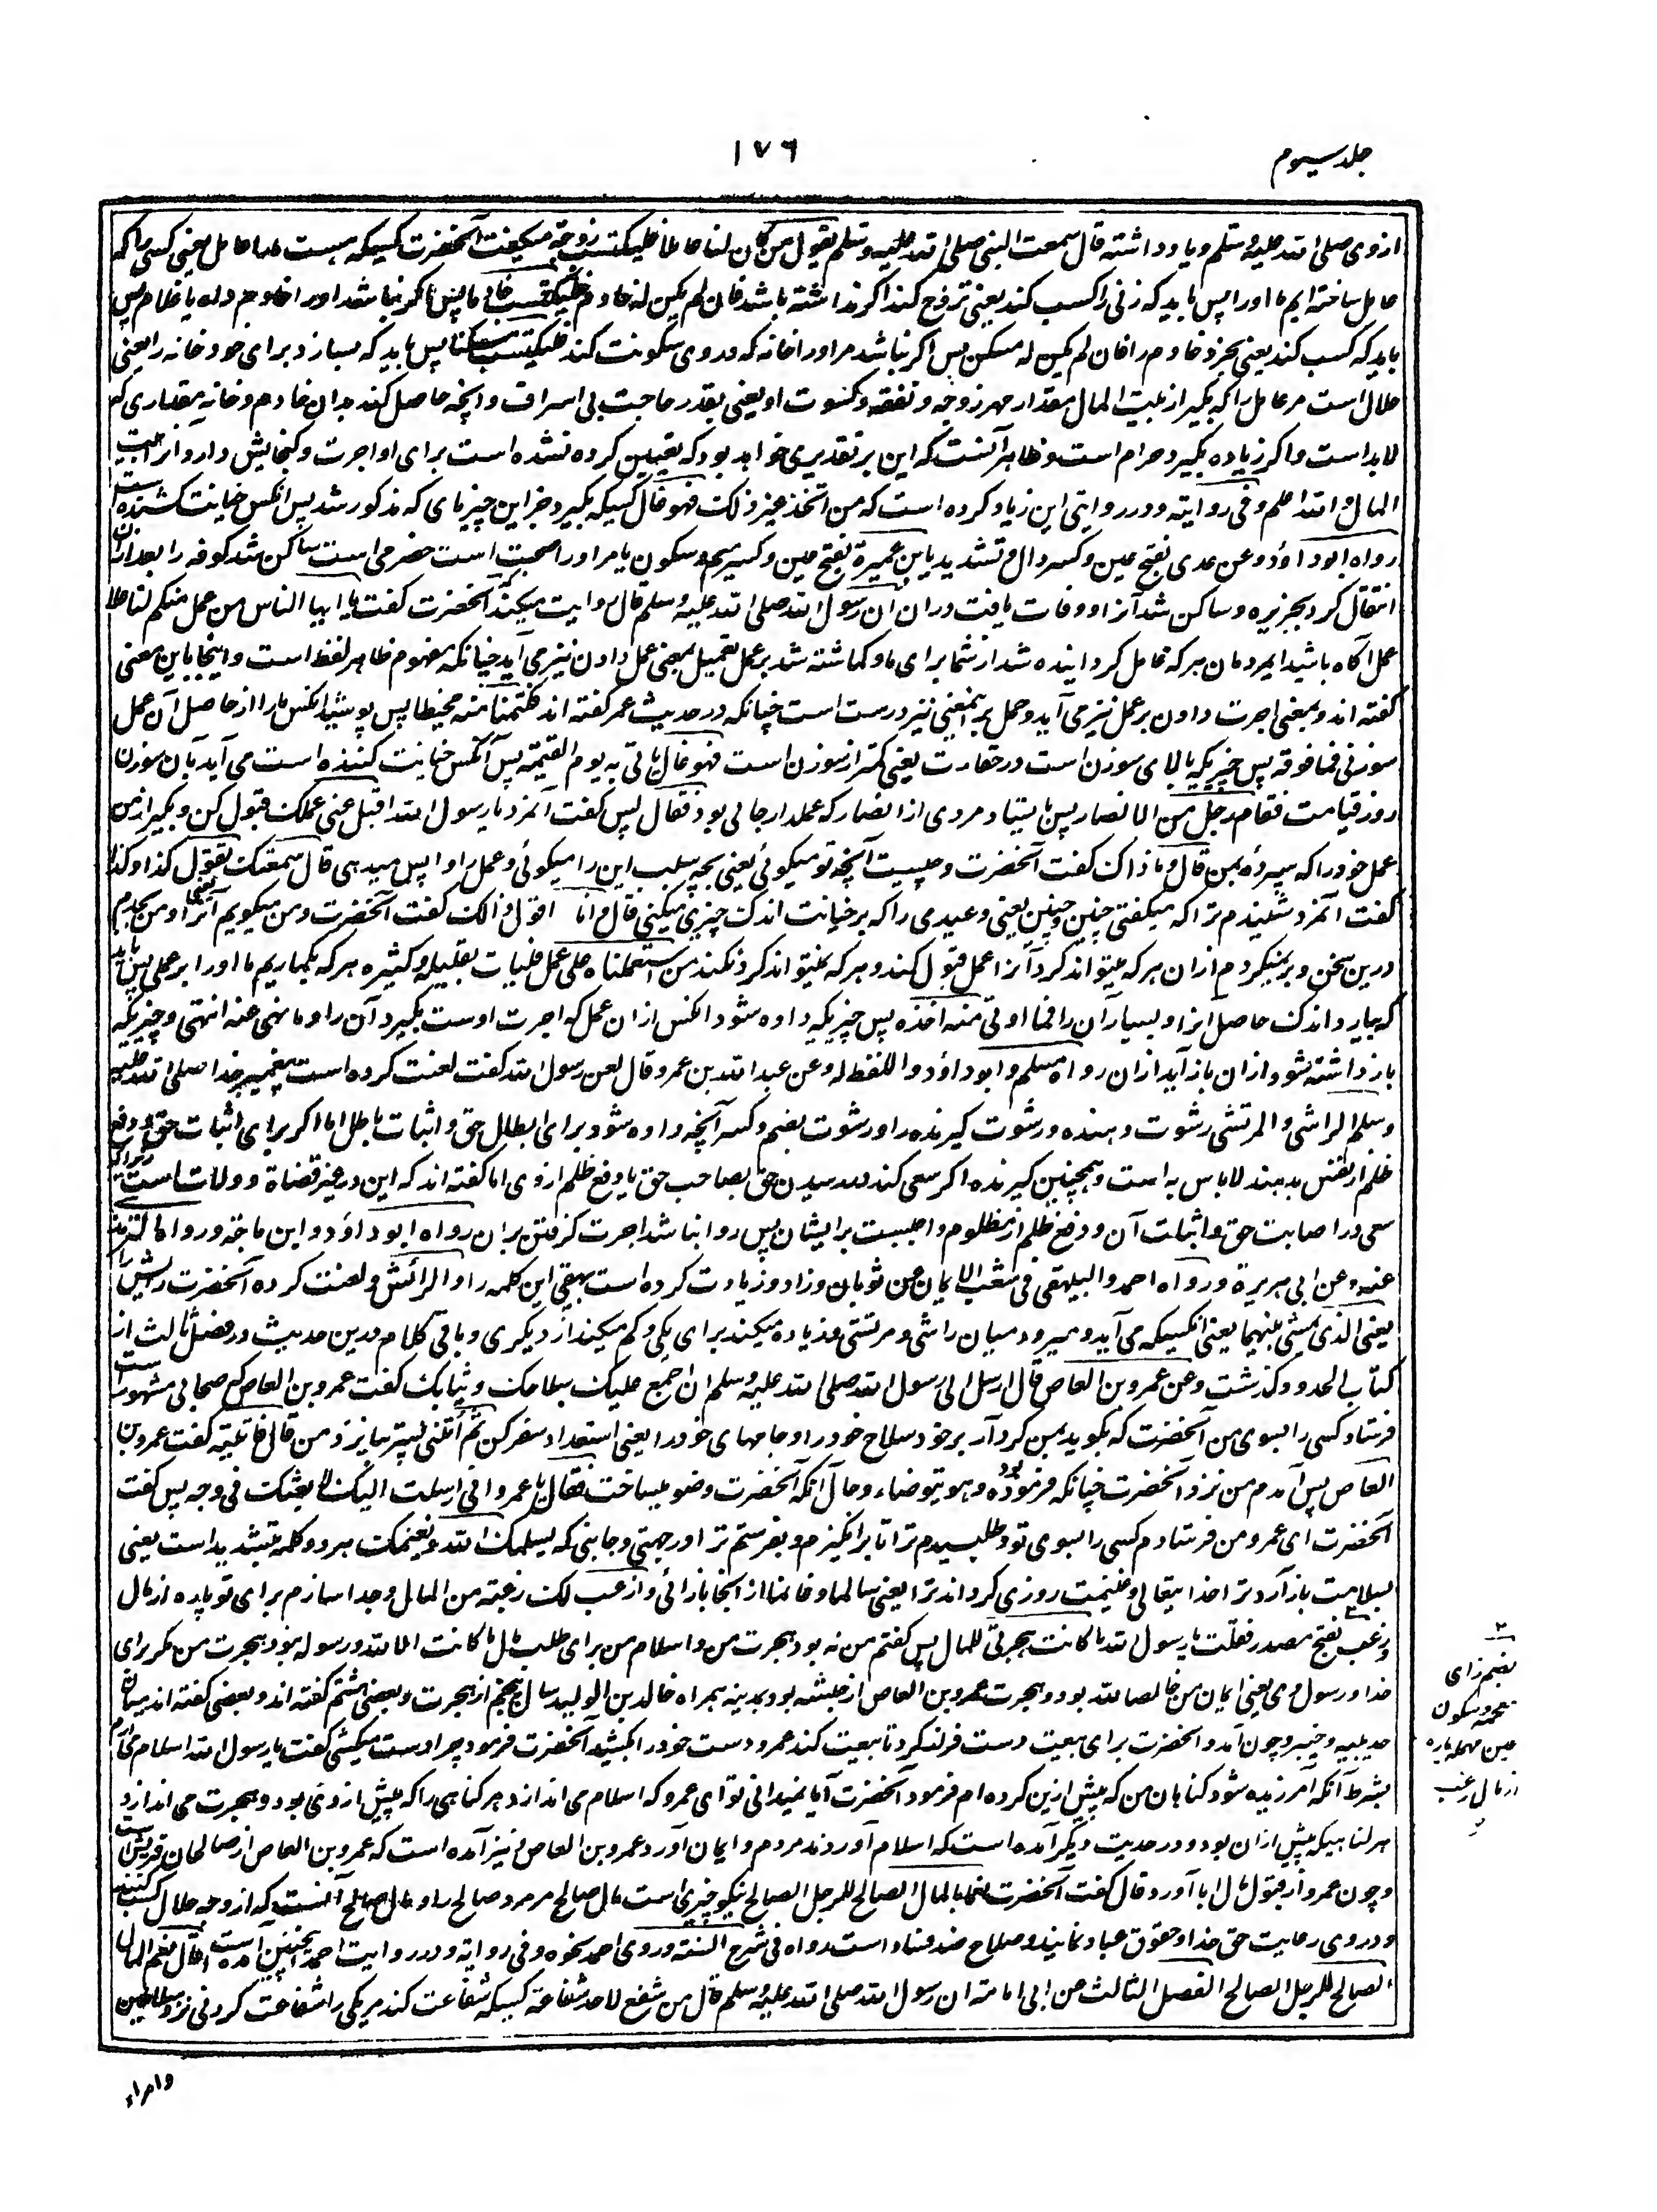 جلد سیوم
١٧٦
از وی صلی الله علیه و سلم و یاد داشته قال سمعت النبی صلی الله علیه و سلم یقول من کان لنا عاملا فلیکتسب زوجة میگفت آنحضرت کسیکه هست ما را عامل یعنی کسی را که
عامل ساخته ایم ما او را پس باید که زنی را کسب کند یعنی تزوج کند اگر نداشته باشد فان لم یکن له خادم فلیکتسب خادما پس اگر نباشد او را خادم داه یا غلام پس
باید که کسب کند یعنی بخرد خادم را فان لم یکن له مسکن پس اگر نباشد مر او را خانه که در وی سکونت کند فلیکتسب مسکنا پس باید که بسازد برای خود خانه را یعنی
حلال است مر عامل را که بگیرد از بیت المال مقدار مهر زوجه و نفقه و کسوت او یعنی بقدر حاجت بی اسراف و آنچه حاصل کند بدان خادم و خانه بمقداری که
لا بد است و اگر زیاده بگیرد حرام است و ظاهر آنست که این بر تقدیری خواهد بود که تعیین کرده نشده است برای او اجرت و گنجایش دارد از بیت
المال و الله اعلم و فی روایة و در روایتی این زیاد کرده است که من اتخذ غیر ذلک فهو غال کسیکه بگیرد جز این چیزهای که مذکور شد پس آنکس خیانت کننده است
رواه ابوداؤد و عن عدی بفتح عین و کسر دال و تشدید یا بن عمیرة بفتح عین و کسر میم و سکون یا مر او را صحبت است حضرمی است ساکن شد کوفه را بعد از آن
انتقال کرد بجزیره و ساکن شد آنرا و وفات یافت در آن ان رسول الله صلی الله علیه و سلم قال روایت میکند که آنحضرت گفت یا ایها الناس من عمل منکم لنا علی
عمل آگاه باشید ایمردمان هر که عامل گردانیده شد از شما برای ما و گماشته شد بر عمل تعمیل بمعنی عمل دادن نیز می آید چنانکه مفهوم ظاهر لفظ است و اینجا باین معنی
گفته اند و بمعنی اجرت دادن بر عمل نیز می آید و حمل بر آنمعنی نیز درست است چنانکه در حدیث عمر گفته اند فکتمنا منه مخیطا پس پوشید آنکس ما را از حاصل آن عمل
سوزنی فما فوقه پس چیزیکه بالای سوزن است در حقارت یعنی کمتر از سوزن است فهو غال یاتی به یوم القیمة پس آنکس خیانت کننده است می آید بآن سوزن
روز قیامت فقام رجل من الانصار پس بایستاد مردی از انصار که عملدار جائی بود فقال پس گفت آنمرد یا رسول الله اقبل عنی عملک قبول کن و بگیر از من
عمل خود را که سپرده بمن قال و ما ذاک گفت آنحضرت و چیست آنچه تو میگوئی یعنی بچه سبب این را میگوئی و عمل را واپس میدهی قال سمعتک تقول کذا و کذا
گفت آنمرد شنیدم ترا که میگفتی چنین و چنین یعنی وعیدی را که بر خیانت اندک چیزی میکنی قال و انا اقول ذلک گفت آنحضرت و من میگویم آنرا یعنی و من بجدم
درین سخن و بر نمیگردم از آن هر که میتواند کرد آنرا عمل قبول کند و هر که نمیتواند کرد نکند من استعملناه علی عمل فلیات بقلیله و کثیره هر که بگماریم ما او را بر عملی پس باید
که بیارد اندک حاصل آنرا و بسیار آن را فما اوتی منه اخذه پس چیزیکه داده شود آنکس از آن عمل که اجرت اوست بگیرد آن را و ما نهی عنه انتهی و چیزیکه
باز داشته شود از آن باز آید از آن رواه مسلم و ابوداؤد و اللفظ له و عن عبد الله بن عمرو قال لعن رسول الله گفت لعنت کرده است پیغمبر خدا صلی الله علیه
و سلم الراشی و المرتشی رشوت دهنده و رشوت گیرنده را و رشوت بضم و کسر آنچه داده شود برای ابطال حق و اثبات باطل اما اگر برای اثبات حق و دفع
ظلم از نفس بدهند لا باس به است و همچنین گیرنده اگر سعی کند در رسیدن حق بصاحب حق یا دفع ظلم از وی اما گفته اند که این در غیر قضاة و ولات است زیرا که
سعی در اصابت حق و اثبات آن و دفع ظلم از مظلوم واجبست بر ایشان پس روا نباشد اجرت گرفتن بر آن رواه ابوداؤد و ابن ماجة و رواه الترمذی
عنه و عن ابی هریرة و رواه احمد و البیهقی فی شعب الایمان عن ثوبان و زاد و زیادت کرده است بیهقی این کلمه را و الرائش و لعنت کرده آنحضرت رائش را
یعنی الذی یمشی بینهما یعنی آنکسیکه می آید و میرود میان راشی و مرتشی و زیاده میکند برای یکی و کم میکند از دیگری و باقی کلام درین حدیث در فصل ثالث از
کتاب الحدود گذشت و عن عمرو بن العاص قال ارسل الی رسول الله صلی الله علیه و سلم ان اجمع علیک سلاحک و ثیابک گفت عمرو بن العاص که صحابی مشهور است
فرستاد کسی را بسوی من آنحضرت که بگوید بمن گرد آر بر خود سلاح خود را و جامهای خود را یعنی استعداد سفر کن ثم أتنی پستر بیا نزد من قال فاتیته گفت عمرو بن
العاص پس آمدم من نزد آنحضرت چنانکه فرموده بود و هو یتوضاء و حال آنکه آنحضرت وضو میساخت فقال یا عمرو انی ارسلت الیک لابعثک فی وجه پس گفت
آنحضرت ای عمرو من فرستادم کسی را بسوی تو و طلبیدم ترا تا برانگیزم و بفرستم ترا در جهتی و جانبی که یسلمک الله و یغنمک هر دو کلمه بتشدید است یعنی
بسلامت باز آرد ترا خدایتعالی و غنیمت روزی گرداند ترا یعنی سالما و غانما از آنجا باز آئی و ازعب لک زعبة من المال و جدا سازم برای تو پاره از مال
و زعب بفتح مصدر فقلت یا رسول الله ما کانت هجرتی للمال پس گفتم من نه بود هجرت من و اسلام من برای طلب مال ما کانت الا لله و رسوله نبود هجرت من مگر برای
خدا و رسول وی یعنی ایمان من خالصا لله بود و هجرت عمرو بن العاص از حبشه بود و بمدینه همراه خالد بن الولید سال پنجم از هجرت و بعضی هشتم گفته اند و بعضی گفته اند میان
حدیبیه و خیبر و چون آمد و آنحضرت برای بیعت دست فراز کرد تا بیعت کند عمرو دست خود را بکشید آنحضرت فرمود چرا دست میکشی گفت یا رسول الله اسلام می آرم
بشرط آنکه آمرزیده شود گناهان من که پیش ازین کرده ام فرمود آنحضرت آیا نمیدانی تو ای عمرو که اسلام می اندازد هر گناهی را که پیش از وی بود و هجرت می اندازد
هر گناهیکه پیش از آن بود و در حدیث دیگر آمده است که اسلام آوردند مردم و ایمان آورد عمرو بن العاص و نیز آمده است که عمرو بن العاص از صالحان قریش است
و چون عمرو از قبول مال ابا آورد قال گفت آنحضرت نعما بالمال الصالح للرجل الصالح نیکو چیزی است مال صالح مر مرد صالح را و مال صالح آنست که از وجه حلال کسب کنند
و در وی رعایت حق خدا و حقوق عباد نمایند و صلاح ضد فساد است رواه فی شرح السنة و روی احمد نحوه و فی روایة و در روایت احمد چنین آمده است قال نعم المال
الصالح للرجل الصالح الفصل الثالث عن ابی امامة ان رسول الله صلی الله علیه و سلم قال من شفع لاحد شفاعة کسیکه شفاعت کند مر یکی را شفاعت کردنی نزد سلاطین
بضم زای
معجمه و سکون
عین مهمله پاره
از مال زعب
وامراء